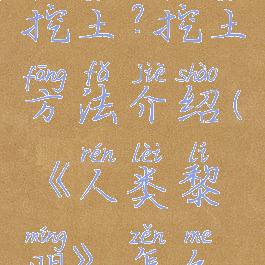 挖土?挖土
fāng fǎ jiè shào
方法介绍(
rén lèi lí
《人类黎
míng zěn me